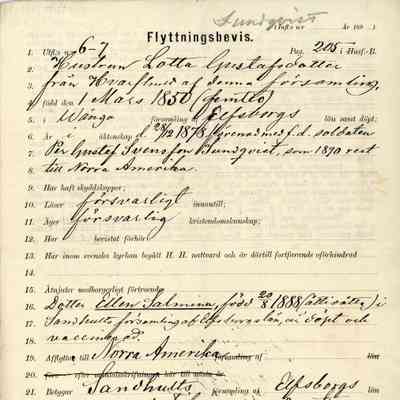 Sundqvist
Utfl:s nr År 189
Flyttningsbevis.
1. Utfl:s nr 6-7 Pag. 215 i Husf.-B.
2. Hustrun Lotta Gustafsdotter
3. från Hvarfhed af denna församling,
4. född den 1 Mars 1850 (femtio)
5. i Wånga församling af Elfsborgs län samt döpt.
6. Är i äktenskap d. 28/12 1878, förenad med f.d. soldaten
7. Per Gustaf Svensson Sundqvist, som 1890 rest
8. till Norra Amerika.
9. Har haft skyddskoppor;
10. Läser försvarligt innantill;
11. Äger försvarlig kristendomskunskap;
12. Har bevistat förhör;
13. Har inom svenska kyrkan begått H. H. nattvard och är därtill fortfarande oförhindrad
14.
15. Åtnjuter medborgerligt förtroende
16. Dotter Ellen Salmina, född 20/8 1888 (åttiåtta) i
17. Sandhults församling af Elfsborgs län, är döpt och
18. vaccinerad.
19. Afflyttar till Norra Amerika församling af län
20.
21. Betygar Sandhults församling af Elfsborgs län